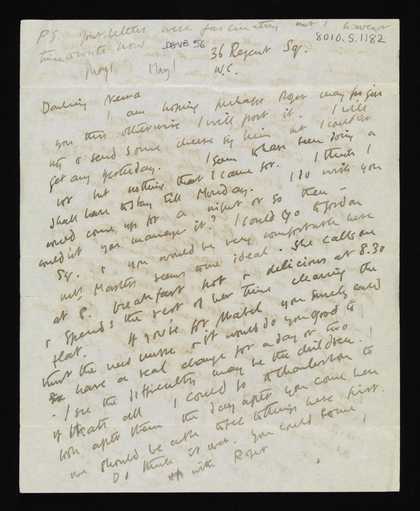 P.S. Your letters were fascinating but I haven't
time to write now
DAVB 56
8010.5.1182
36 Regent Sq.
May! May! W.C.
Darling Nessa
I am hoping perhaps Roger may bring
you this otherwise I will post it. I will
try & send some cheese by him but I couldn't
get any yesterday. I seem to have been doing a
lot but nothing that I came for. I think I
shall have to stay till Monday. I do wish you
would come up for a night or so then –
couldn't you manage it? I could go to Gordon
Sq. & you would be very comfortable here
Mrs Masters seems one ideal. She calls one
at 8. breakfast hot & delicious at 8.30
& spends the rest of her time cleaning the
flat. If you're for Mabel you surely could
trust the new nurse & it would do you good to
have a real change for a day or two
I see the difficulty may be the children.
If that all I could go to Charleston to
look after them the day after you come here
we should be with to see to things here first.
Do think it over. You could come
up with Roger